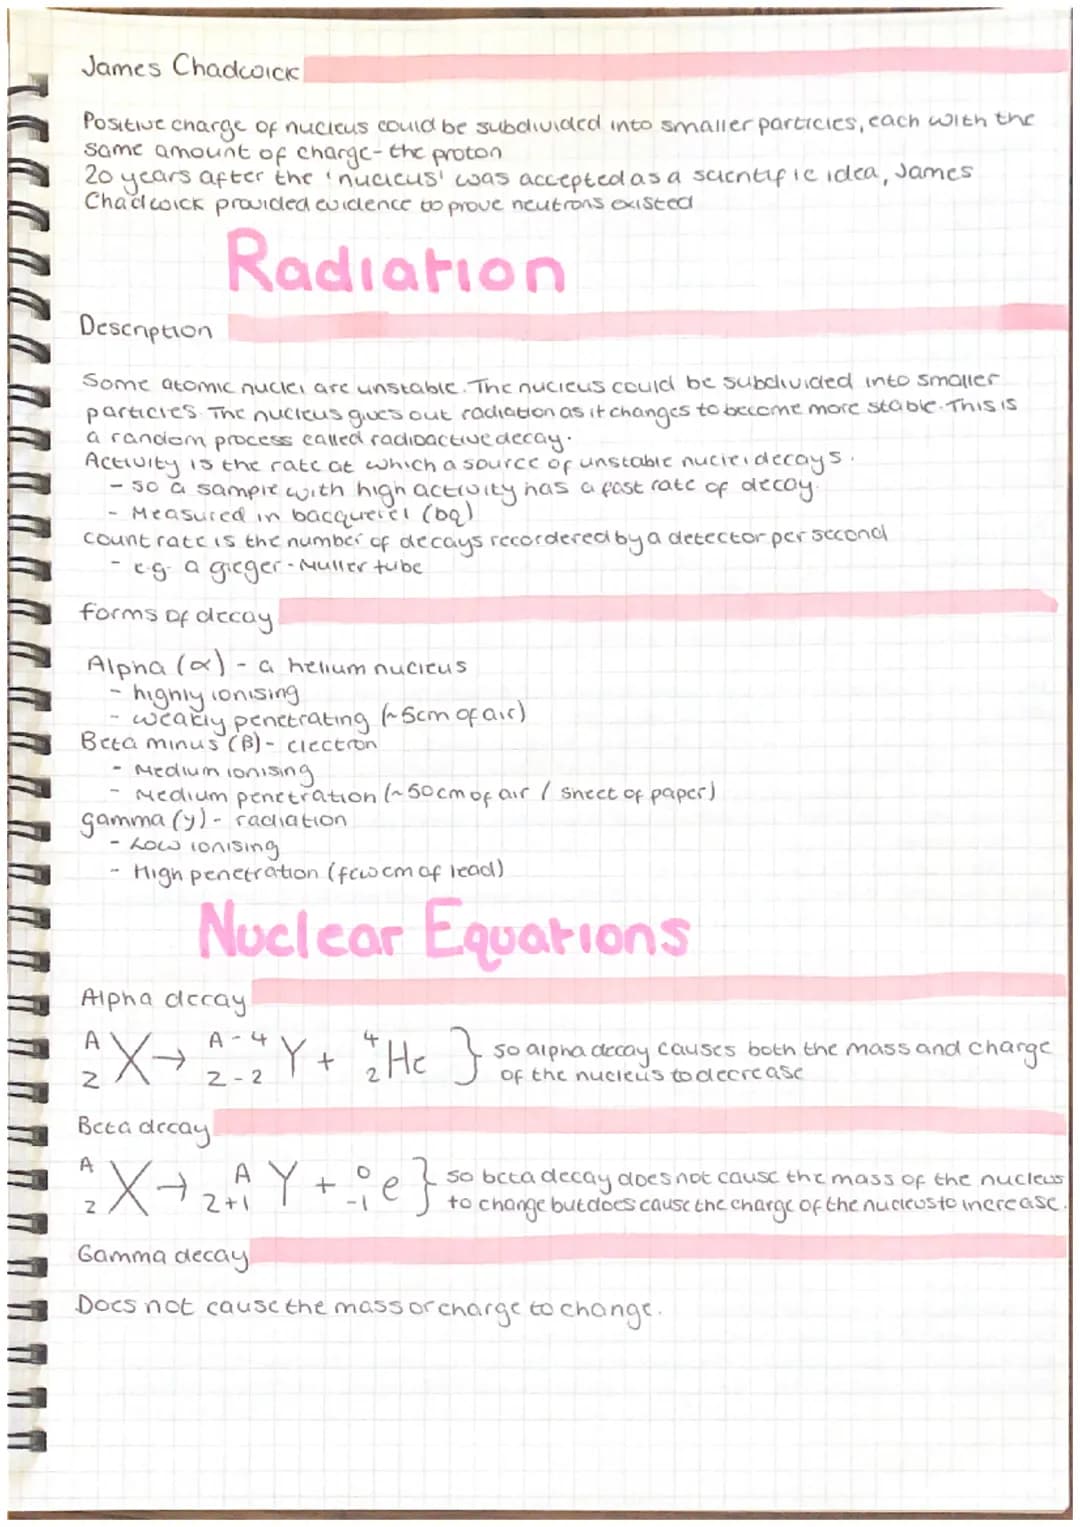 James Chadwick
Positive charge of nucleus could be subdivided into smaller particles, each with the
same amount of charge - the proton
20 years after the 'nucleus' was accepted as a scientific idea, James
Chadwick provided evidence to prove neutrons existed
Radiation
Description
Some atomic nuclei are unstable. The nucleus could be subdivided into smaller
particles. The nucleus gives out radiation as it changes to become more stable. This is
a random process called radioactive decay.
Activity is the rate at which a source of unstable nuclei decays.
- so a sample with high activity has a fast rate of decay.
- Measured in bacquerel (bq)
count rate is the number of decays recordered by a detector per second
- e.g. a gieger-Muller tube
forms of decay
Alpha (α) - a helium nucleus
- highly ionising
- weakly penetrating (~5cm of air)
Beta minus (β) - electron
- Medium ionising
- Medium penetration (~50cm of air / sheet of paper)
gamma (y) - radiation
- Low ionising
- High penetration (few cm of lead)
Nuclear Equations
Alpha decay
A A-4 4
X → Y + He } so alpha decay causes both the mass and charge
2 2-2 2 of the nucleus to decrease
Beta decay
A A 0
X → Y + e } so beta decay does not cause the mass of the nucleus
2 2+1 -1 to change but does cause the charge of the nucleus to increase.
Gamma decay
Does not cause the mass or charge to change.